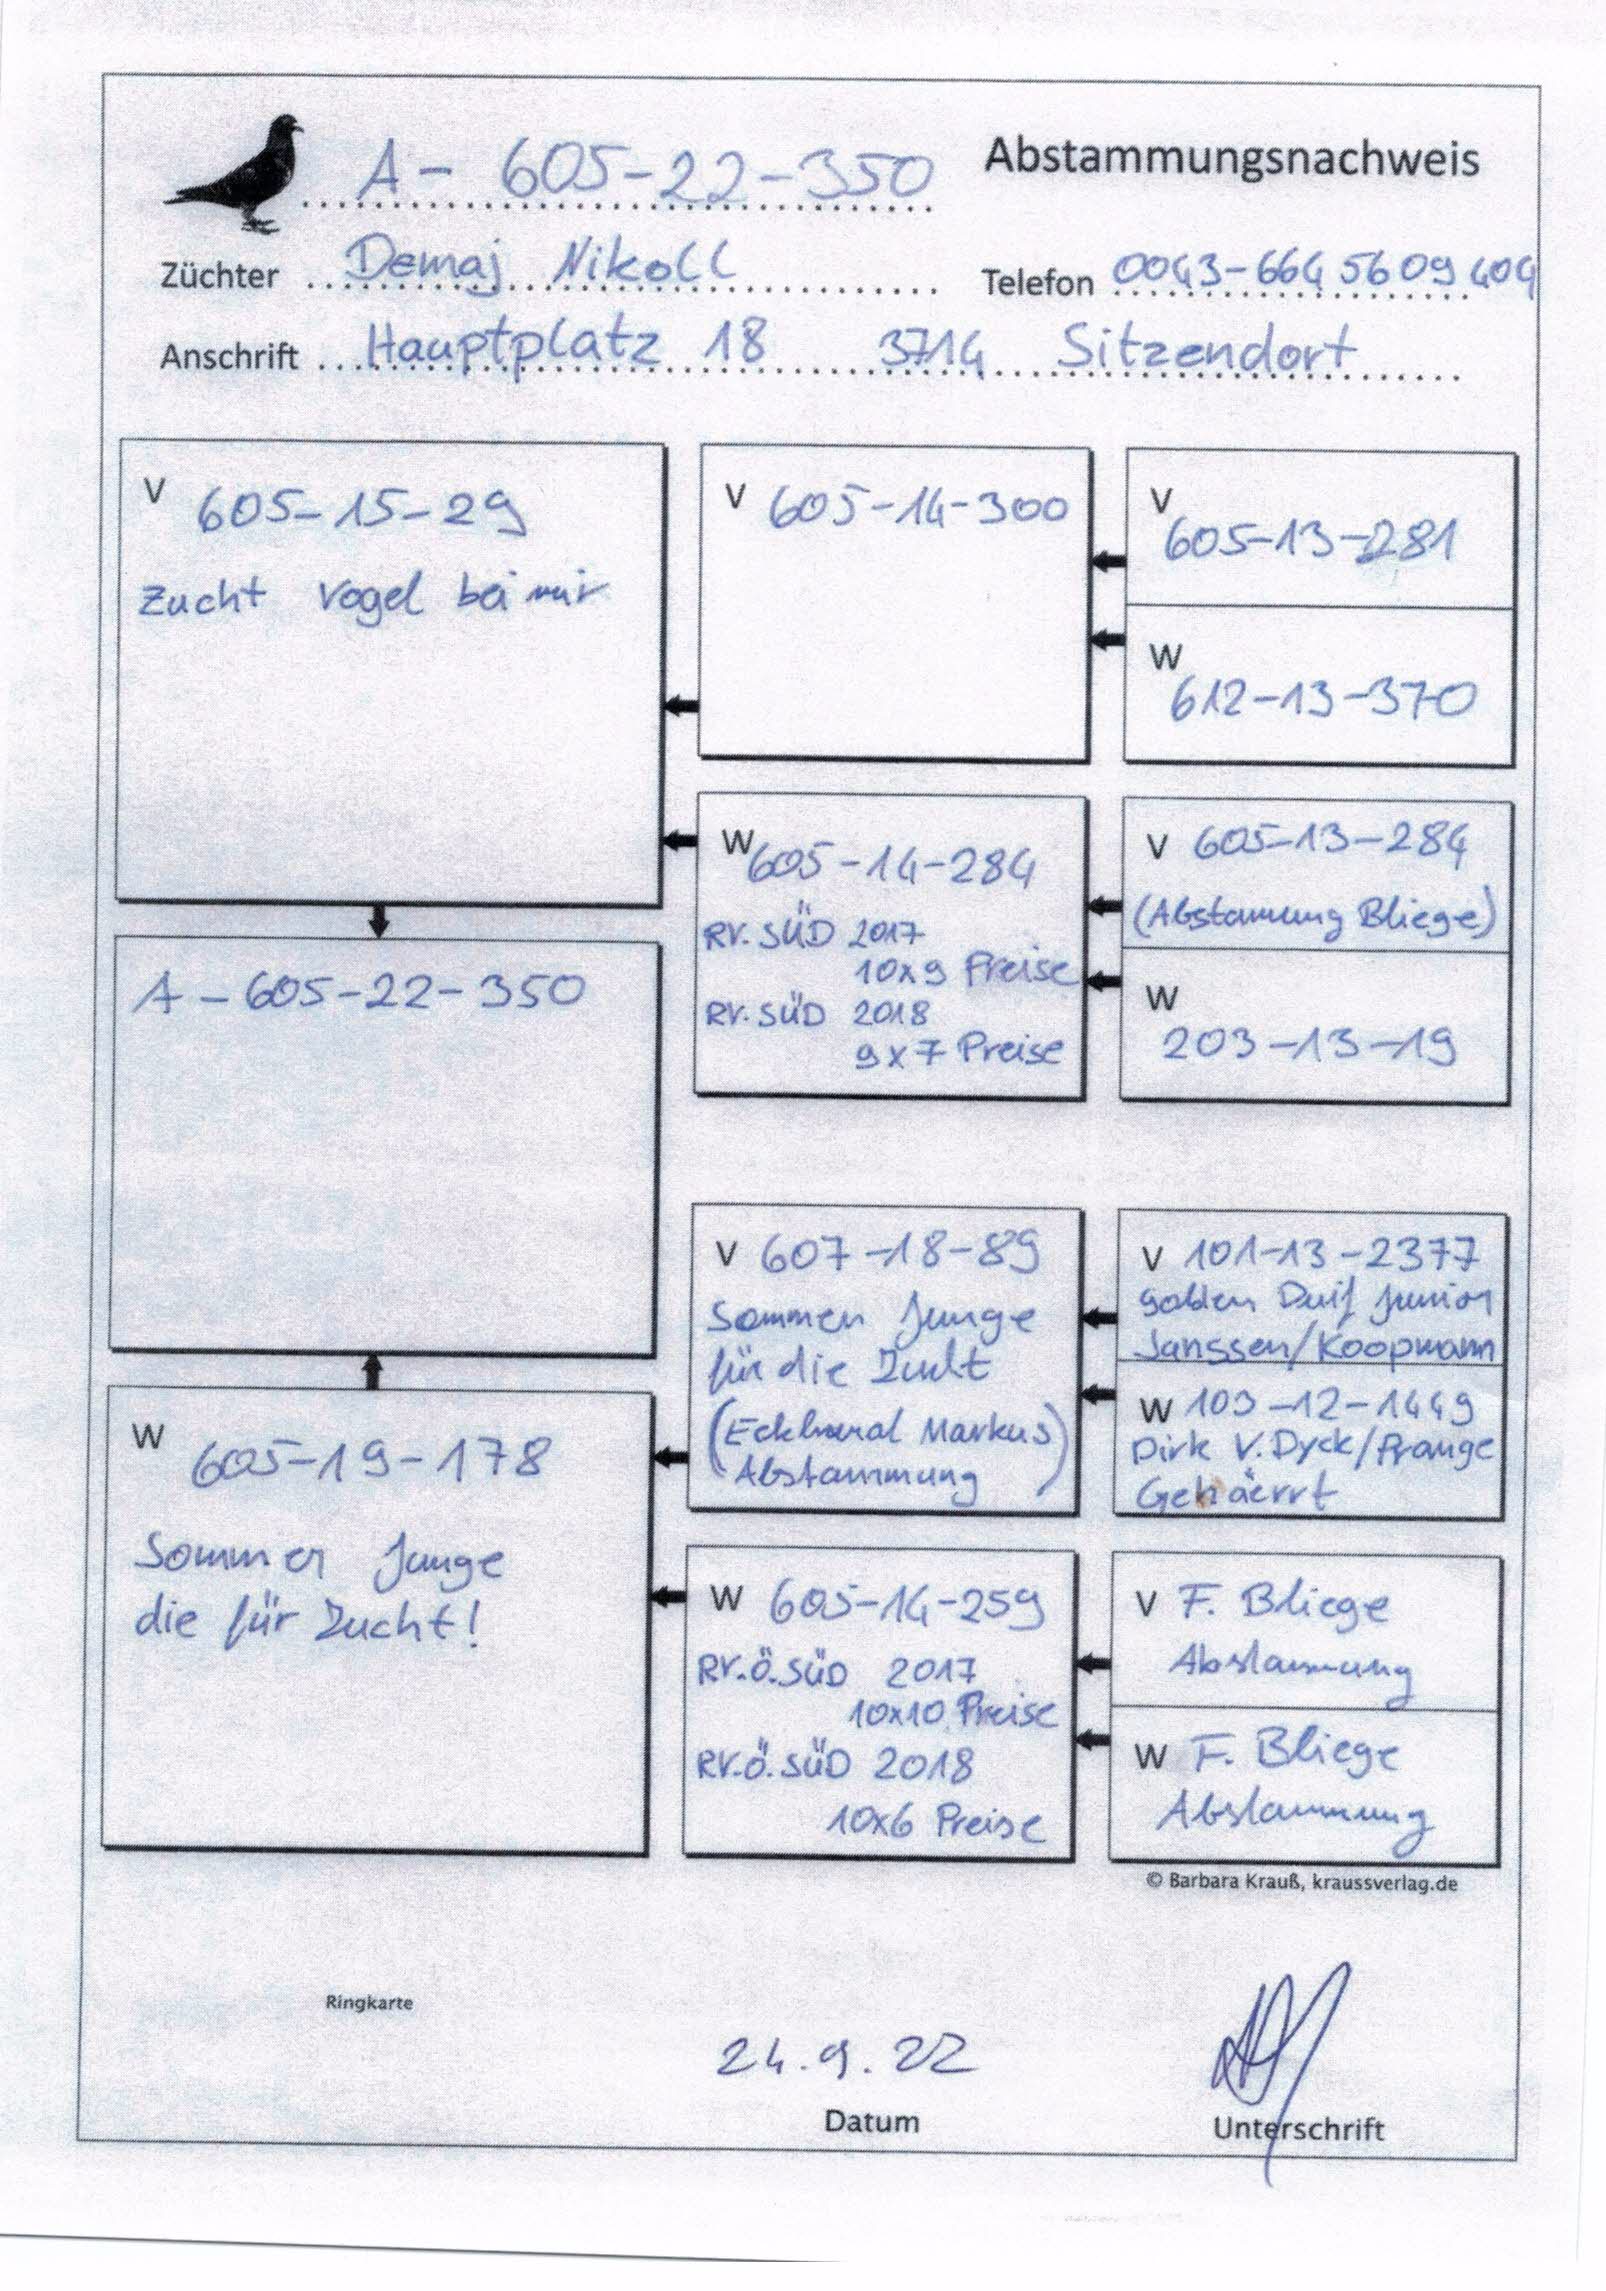 A - 605-22-350
Abstammungsnachweis
Züchter Demaj Nikoll
Telefon 0043-664 5609 404
Anschrift Hauptplatz 18 3714 Sitzendorf
V 605-15-29
Zucht Vogel bei mir
V 605-14-300
V 605-13-281
W 612-13-370
W 605-14-284
RV. SÜD 2017
10x9 Preise
RV. SÜD 2018
9x7 Preise
V 605-13-284
(Abstammung Bliege)
W 203-13-19
A - 605-22-350
W 605-19-178
Sommer Junge
die für Zucht!
V 607-18-89
Sommer Junge
für die Zucht
(Eckhard Markus)
Abstammung
V 101-13-2377
golden Duif Junior
Janssen/Koopmann
W 103-12-1449
Dirk V. Dyck/Prange
W 605-14-259
RV.Ö.SÜD 2017
10x10 Preise
RV.Ö.SÜD 2018
10x6 Preise
V F. Bliege
Abstammung
W F. Bliege
Abstammung
© Barbara Krauß, kraussverlag.de
Ringkarte
24.9.22
Datum
Unterschrift